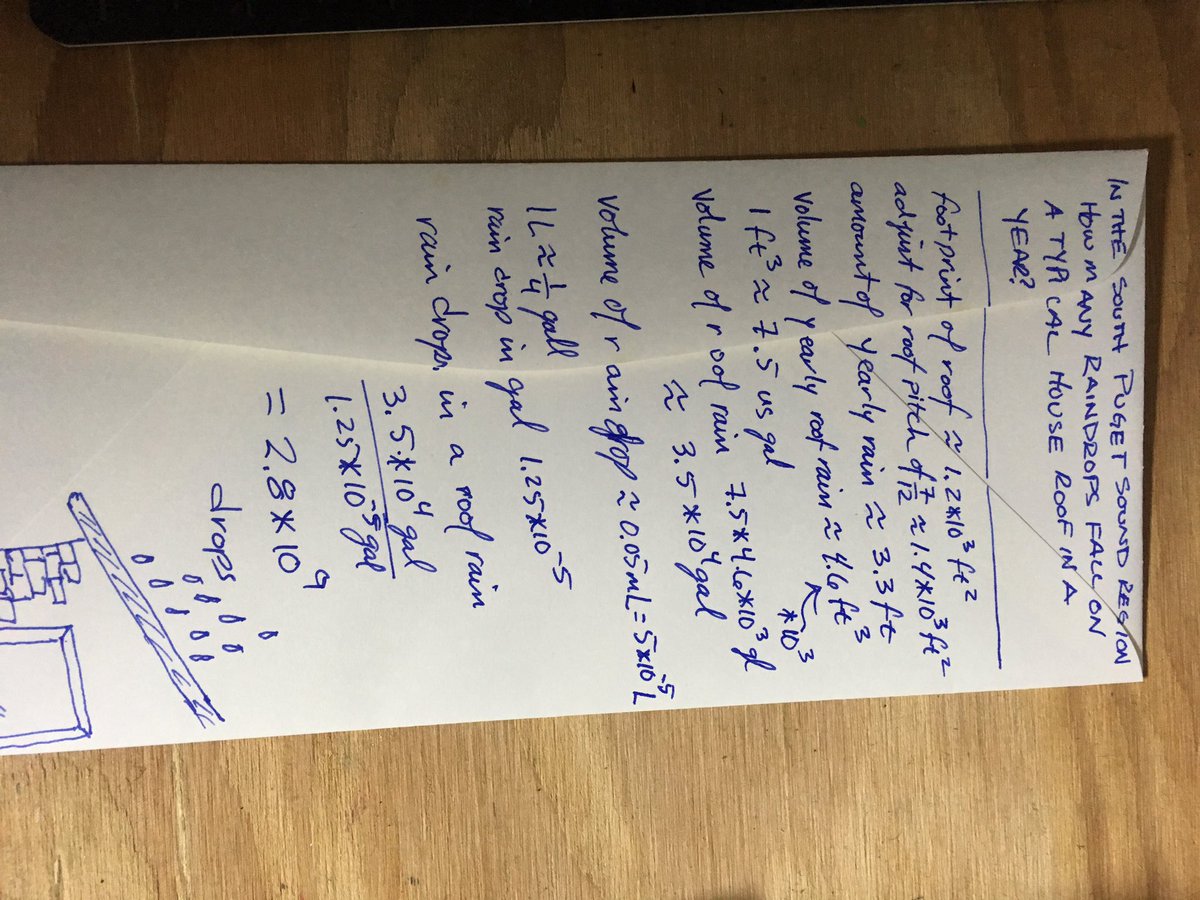 IN THE SOUTH PUGET SOUND REGION
HOW MANY RAINDROPS FALL ON
A TYPICAL HOUSE ROOF IN A
YEAR?
footprint of roof ≈ 1.2*10³ ft²
adjust for roof pitch of 7/12 ≈ 1.4*10³ ft²
amount of yearly rain ≈ 3.3 ft
volume of yearly roof rain ≈ 4.6 ft³
*10³
1 ft³ ≈ 7.5 us gal
volume of roof rain 7.5*4.6*10³ gl
≈ 3.5*10⁴ gal
volume of raindrop ≈ 0.05mL = 5*10⁻⁵ L
1L ≈ 1/4 gall
rain drop in gal 1.25*10⁻⁵
rain drops in a roof rain
3.5*10⁴ gal
1.25*10⁻⁵ gal
= 2.8*10⁹
drops